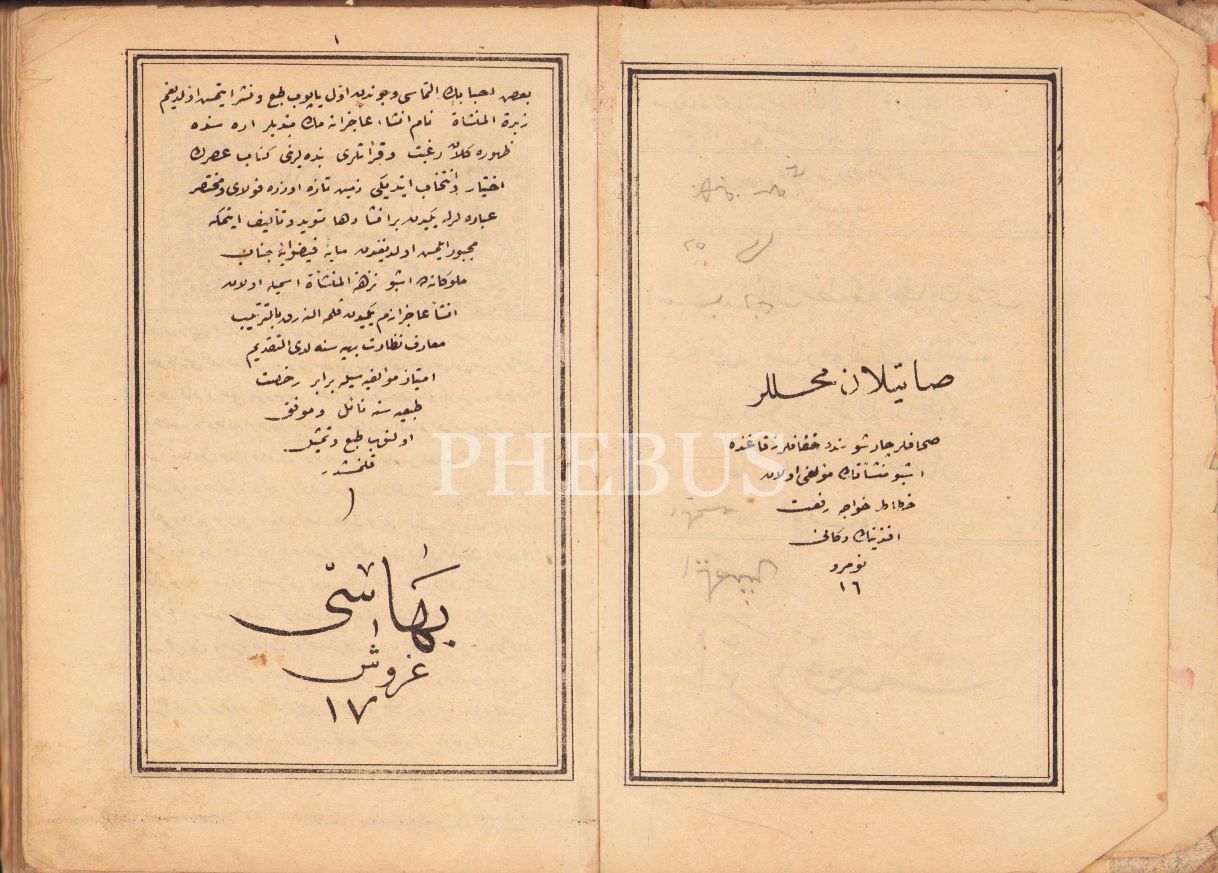 صاتیلان محللر
صحافلر چارشوسنده حقاقلر زقاغنده
اشبو منشآتك مؤلفی اولان
خطاط خواجه رفعت
افندینك دكانی
نومرو
١٦
١
بعض احبابك التماسی وجوهندن اول یاپوب طبع ونشر ایتمش اولدیغم
زبدة المنشآة نام انشاء عاجزانه مك مبتدیلر اره سنده
ظهوره كلان رغبت
كتاب عصرك
اختیار وانتخاب ایتدیكی زمین تازه اوزره قولای ومختصر
عباره لرله یكیدن بر انشا دها تسوید وتألیف ایتمكه
مجبور ایتمش اولدیغندن سایه فیضوایه جناب
ملوكانه ده اشبو نزهة المنشآة اسمیله اولان
انشا عاجزانه م یكیدن قلمه النه رق بالترتیب
معارف نظارت بهیه سنه لدی التقدیم
امتیاز مؤلفیه سیله برابر رخصت
طبعیه سنه نائل وموفق
اولنوب طبع وتمثیل
قلنمشدر
بهاسی
غروش
١٧
PHEBUS